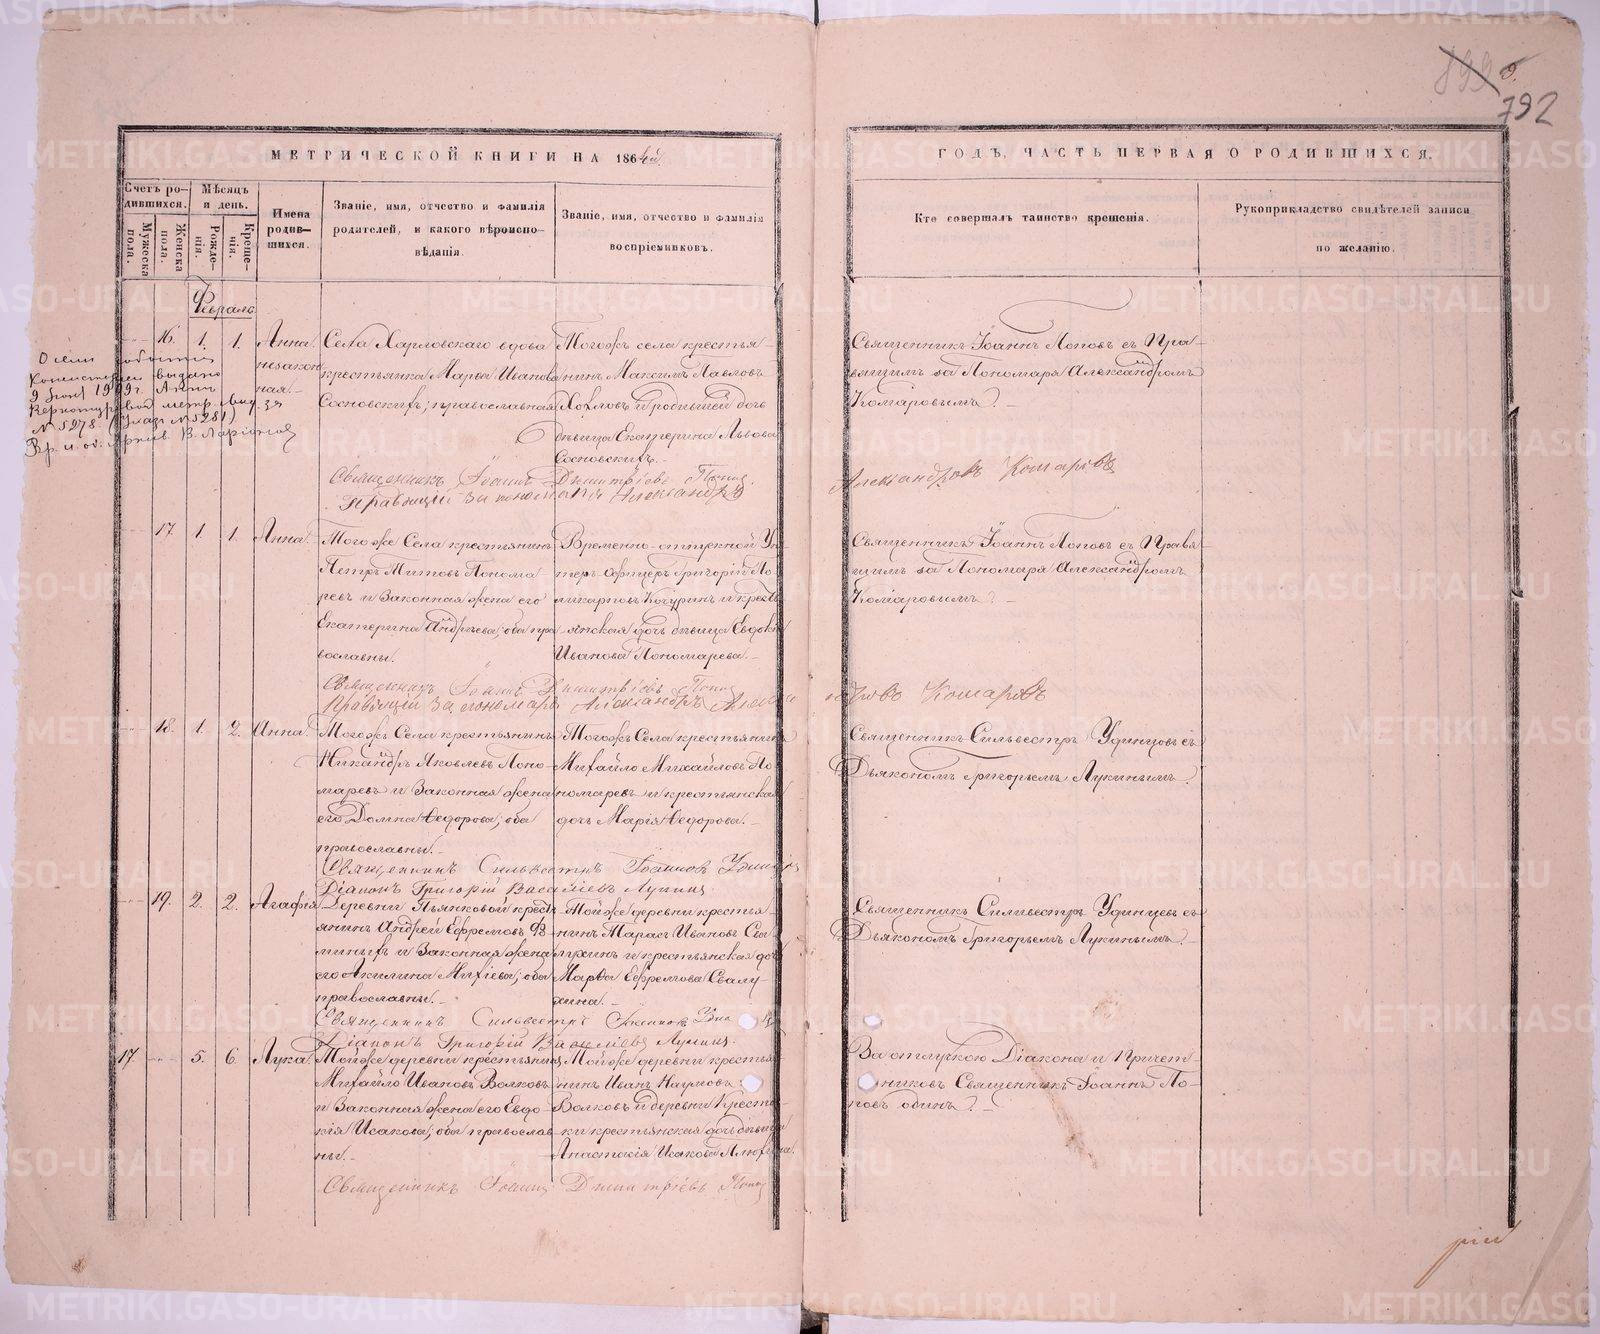 792
МЕТРИЧЕСКОЙ КНИГИ НА 1864й
ГОДЪ, ЧАСТЬ ПЕРВАЯ О РОДИВШИХСЯ.
Счетъ ро-
дившихся.
Мужеска пола.
Женска пола.
Мѣсяцъ
и день.
Рожде-
нія.
Креще-
нія.
Имена
родив-
шихся.
Званіе, имя, отчество и фамилія
родителей, и какого вѣроиспо-
вѣданія.
Званіе, имя, отчество и фамилія
воспріемниковъ.
Кто совершалъ таинство крещенія.
Рукоприкладство свидѣтелей записи
по желанію.
Февраль
16. 1. 1. Анна.
незакон
ная.
Села Харловскаго вдова
крестьянка Марья Иванова
Сосновскихъ; православная
Тогожъ села крестья-
нинъ Максимъ Павловъ
Хохловъ и родившей дочь
дѣвица Екатерина Львова
Сосновскихъ.
Священникъ Іоаннъ Поповъ съ Пра-
вящимъ за Пономаря Александромъ
Комаровымъ.
Священникъ Іоаннъ Дмитріевъ Попов
Правящій за пономаря Александръ
Александровъ Комаровъ
17. 1. 1. Анна.
Тогоже Села крестьянинъ
Петръ Титовъ Понома-
ревъ и Законная жена его
Екатерина Андрѣева; оба пра-
вославны.
Временно-отпускной Ун-
теръ-Офицеръ Григорій По-
ликарповъ Кочуринъ и кресть-
янская дочь дѣвица Евдокія
Иванова Пономарева.
Священникъ Іоаннъ Поповъ съ Правя-
щимъ за Пономаря Александромъ
Комаровымъ.
Священникъ Іоаннъ Дмитріевъ Попов
Правящій за пономаря Александръ Александровъ Комаровъ
18. 1. 2. Анна.
Тогожъ Села крестьянинъ
Никандръ Яковлевъ Поно-
маревъ и Законная жена
его Домна Ѳедорова; оба
православны.
Тогожъ Села крестьянинъ
Михайло Михайловъ По-
номаревъ и крестьянская
дочь Марія Ѳедорова.
Священникъ Сильвестръ Удинцовъ съ
Дьякономъ Григорьемъ Лукинымъ.
Священникъ Сильвестръ Іоанновъ Удинцов
Діаконъ Григорій Василіевъ Лукинъ.
19. 2. 2. Агафья
Деревни Пьянковой кресть-
янинъ Андрей Ефремовъ
и Законная жена
его Акилина Михіева; оба
православны.
Тойже деревни крестья-
нинъ Тарасъ Ивановъ
и крестьянская дочь
Марѳа Ефремова Свалу-
хина.
Священникъ Сильвестръ Удинцевъ съ
Дьякономъ Григорьемъ Лукинымъ.
Священникъ Сильвестръ Іоанновъ
Діаконъ Григорій Василіевъ Лукинъ.
17. 5. 6. Лука.
Тойже деревни крестьянинъ
Михайло Ивановъ Волковъ
и Законная жена его Евдо-
кія Исакова; оба православ-
ны.
Тойже деревни крестья-
нинъ Иванъ Наумовъ
Волковъ и деревни
крестьянская дочь дѣвица
Анастасія Исакова
За отлучкою Діакона и Причет-
никовъ Священникъ Іоаннъ По-
повъ одинъ.
Священникъ Іоаннъ Дмитріевъ Попов